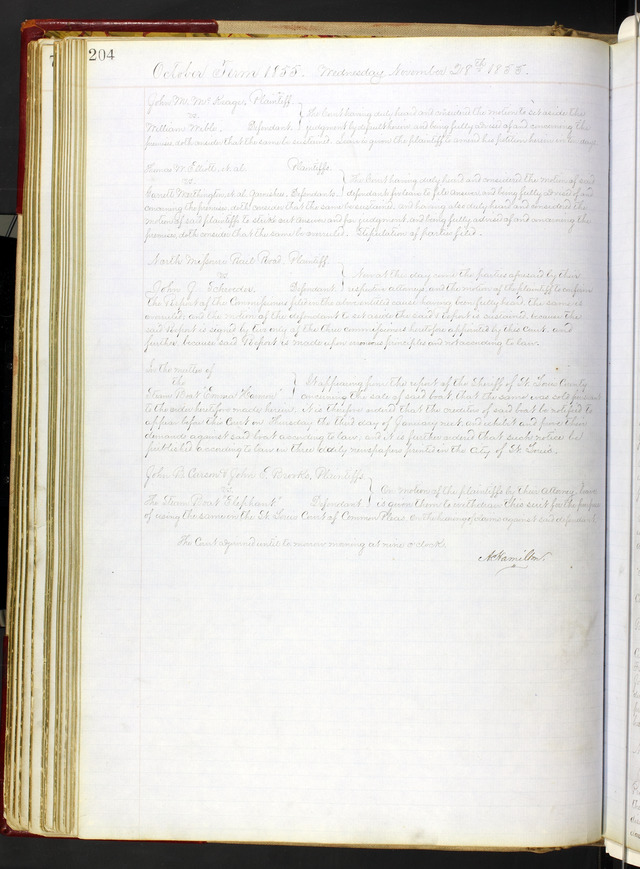 204
October Term 1855. Wednesday November 28th 1855.
John M. Plaintiff
vs
William Defendant. } The Court having duly heard and considered the motion to set aside the
judgment by default herein and being fully advised of and concerning the
premises doth consider that the same be sustained. Leave is given the plaintiff to amend his petition herein in days.
Thomas W. et al. Plaintiffs
vs
Worthington, et al. Defendants } The Court having duly heard and considered the motion of said
defendants for leave to file answer, and being fully advised of and
concerning the premises, doth consider that the same be sustained, and having also duly heard and considered the
motion of said plaintiffs to strike out answer and for judgment, and being fully advised of and concerning the
premises, doth consider that the same be overruled. Stipulation of parties filed.
North Missouri Rail Road, Plaintiff.
vs
John J. Defendant. } Now at this day come the parties aforesaid by their
respective attorneys, and the motion of the plaintiff to confirm
the Report of the Commissioners filed in the above entitled cause having been fully heard, the same is
overruled; and the motion of the defendant to set aside the said Report is sustained, because the
said Report is signed by two only of the three commissioners heretofore appointed by this Court. and
further because said Report is made upon erroneous principles and not according to law.
In the matter of
the
Steam Boat "Emma Harmon" } It appearing from the report of the Sheriff of St. Louis County
concerning the sale of said boat, that the same was sold pursuant
to the order heretofore made herein. It is therefore ordered that the creditors of said boat be notified to
appear before this Court on Thursday the third day of January next and exhibit and prove their
demands against said boat according to law, and it is further ordered that such notice be
published according to law in three daily newspapers printed in the City of St. Louis.
John B. Carson & John S. Brooks, Plaintiffs
vs
The Steam Boat "Elephant" Defendant } On motion of the plaintiffs by their Attorney, leave
is given them to withdraw this suit for the purpose
of using the same in the St. Louis Court of Common Pleas, on the hearing of claims against said defendant.
The Court adjourned until to morrow morning at nine o'clock.
A. Hamilton.